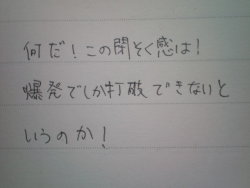 何だ！この閉そく感は！
爆発でしか打破できないと
いうのか！